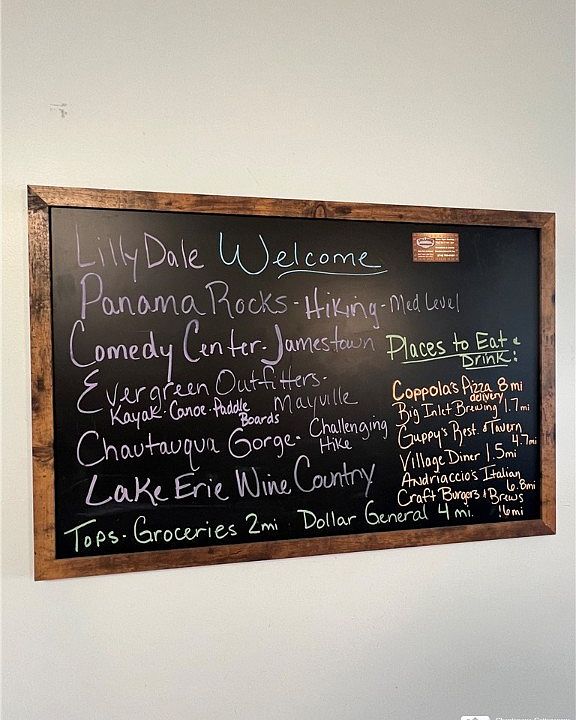 Lilly Dale Welcome
Panama Rocks - Hiking - Med Level
Comedy Center - Jamestown
Evergreen Outfitters -
Kayak - Canoe - Paddle Boards Mayville
Chautauqua Gorge - Challenging Hike
Lake Erie Wine Country
Places to Eat &
Drink:
Coppola's Pizza 8 mi
delivery
Big Inlet Brewing 1.7 mi
Guppy's Rest. & Tavern
4.7mi
Village Diner 1.5mi
Andriaccio's Italian
6.8mi
Craft Burgers & Brews
Tops - Groceries 2mi Dollar General 4 mi.